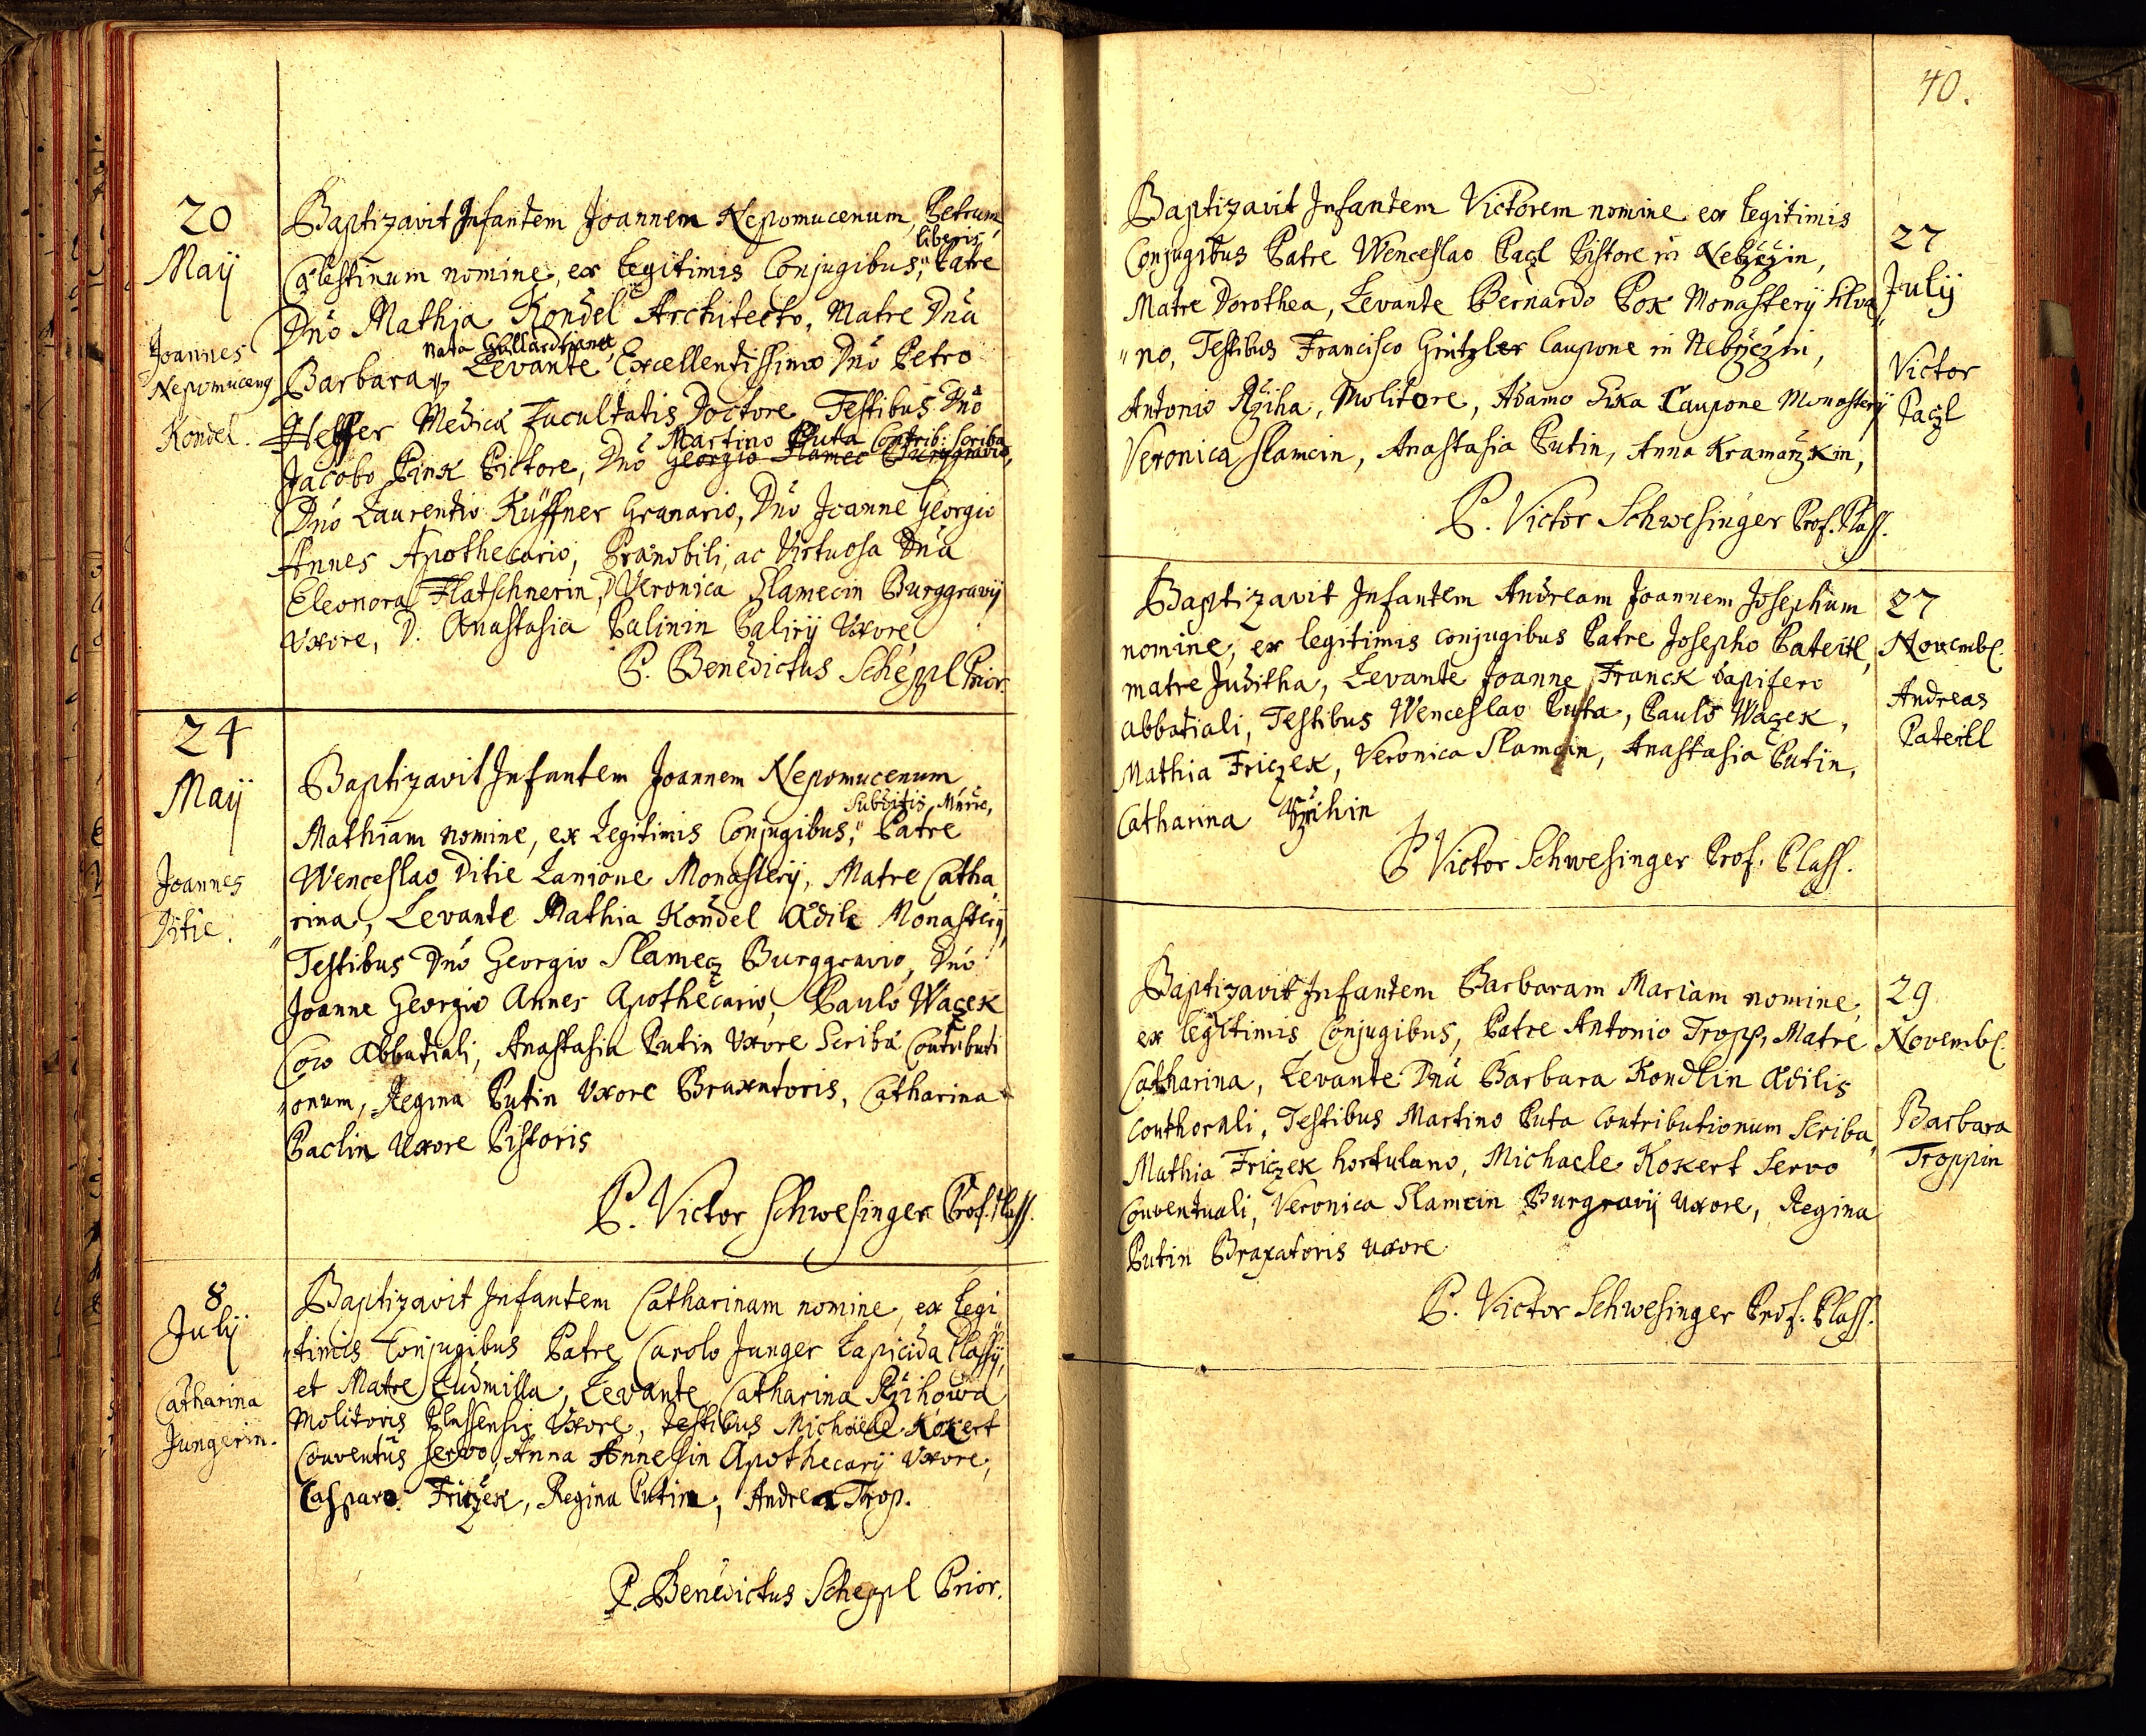 20
Maÿ
Joannes
Nepomuceng
Kondel.
Baptizavit Infantem Joannem Nepomucenum, Petrum,
liberis,
Cælestinum nomine, ex legitimis Conjugibus, Patre
Dno Mathia Kondel Architecto, Matre Dna
nata
Barbara, Levante Excellentissimo Dno Petro
Medicæ Facultatis Doctore, Testibus Dno
Martino Puta Contrib: Scriba
Jacobo Pink Pictore, Dno Georgio Slamec Burggravio,
Dno Laurentio Küffner Granario, Dno Joanne Georgio
Annes Apothecario, Prænobili, ac Virtuosa Dna
Eleonora Flatschnerin, D Veronica Slamecin Burggravÿ
Uxore, D. Anastasia Palinin Palirÿ Uxore
P. Benedictus Scheppl Prior.
24
Maÿ
Joannes
Ditie.
Baptizavit Infantem Joannem Nepomucenum
Subditis
Mathiam nomine, ex Legitimis Conjugibus, Patre
Wenceslao Ditie Lanione Monasterÿ, Matre Catha
rina, Levante Mathia Kondel Ædile Monasterÿ,
Testibus Dno Georgio Slamecz Burggravio, Dno
Joanne Georgio Annes Apothecario, Paulo Waczek
Coco Abbatiali, Anastasia Putin Uxore Scribæ Contributi
onum, Regina Putin Uxore Braxatoris, Catharina
Paclin Uxore Pistoris
P. Victor Schwesinger Prof. Plass.
8
Julÿ
Catharina
Jungerin.
Baptizavit Infantem Catharinam nomine, ex legi
timis Conjugibus Patre Carolo Junger Lapicida Plassÿ,
et Matre Ludmilla, Levante Catharina Rzihowa
Molitoris Plassensis Uxore, testibus Michaele Kokert
Conventûs servo, Anna Annesin Apothecarÿ Uxore,
Casparo Friczek, Regina Putin, Andrea Trop.
P. Benedictus Scheppl Prior.
40.
Baptizavit Infantem Victorem nomine ex legitimis
Conjugibus Patre Wenceslao Paczl Pistore in Nebrzezin,
Matre Dorothea, Levante Bernardo Pok Monasterÿ Silva
no, Testibus Francisco Grintzler Caupone in
Antonio Rziha, Molitore, Adamo Sika Caupone Monasterÿ
Veronica Slamcin, Anastasia Putin, Anna Kramarzkin,
P. Victor Schwesinger Prof. Plass.
27
Julÿ
Victor
Paczl
Baptizavit Infantem Andream Joannem Josephum
nomine, ex legitimis conjugibus Patre Josepho Pateitl,
matre Juditha, Levante Joanne Franck dapifero
abbatiali, Testibus Wenceslao Puta, Paulo Waczek,
Mathia Friczek, Veronica Slamcin, Anastasia Putin,
Catharina Rzihin
P Victor Schwesinger Prof. Plass.
27
Novemb.
Andreas
Pateitl
Baptizavit Infantem Barbaram Mariam nomine,
ex legitimis Conjugibus, Patre Antonio Tropp, Matre
Catharina, Levante Dna Barbara Kondlin Ædilis
Conthorali, Testibus Martino Puta Contributionum Scriba,
Mathia Friczek hortulano, Michaele Kokert Servo
Conventuali, Veronica Slamcin Burgravÿ uxore, Regina
Putin Braxatoris uxore
P. Victor Schwesinger Prof. Plass.
29
Novemb.
Barbara
Troppin